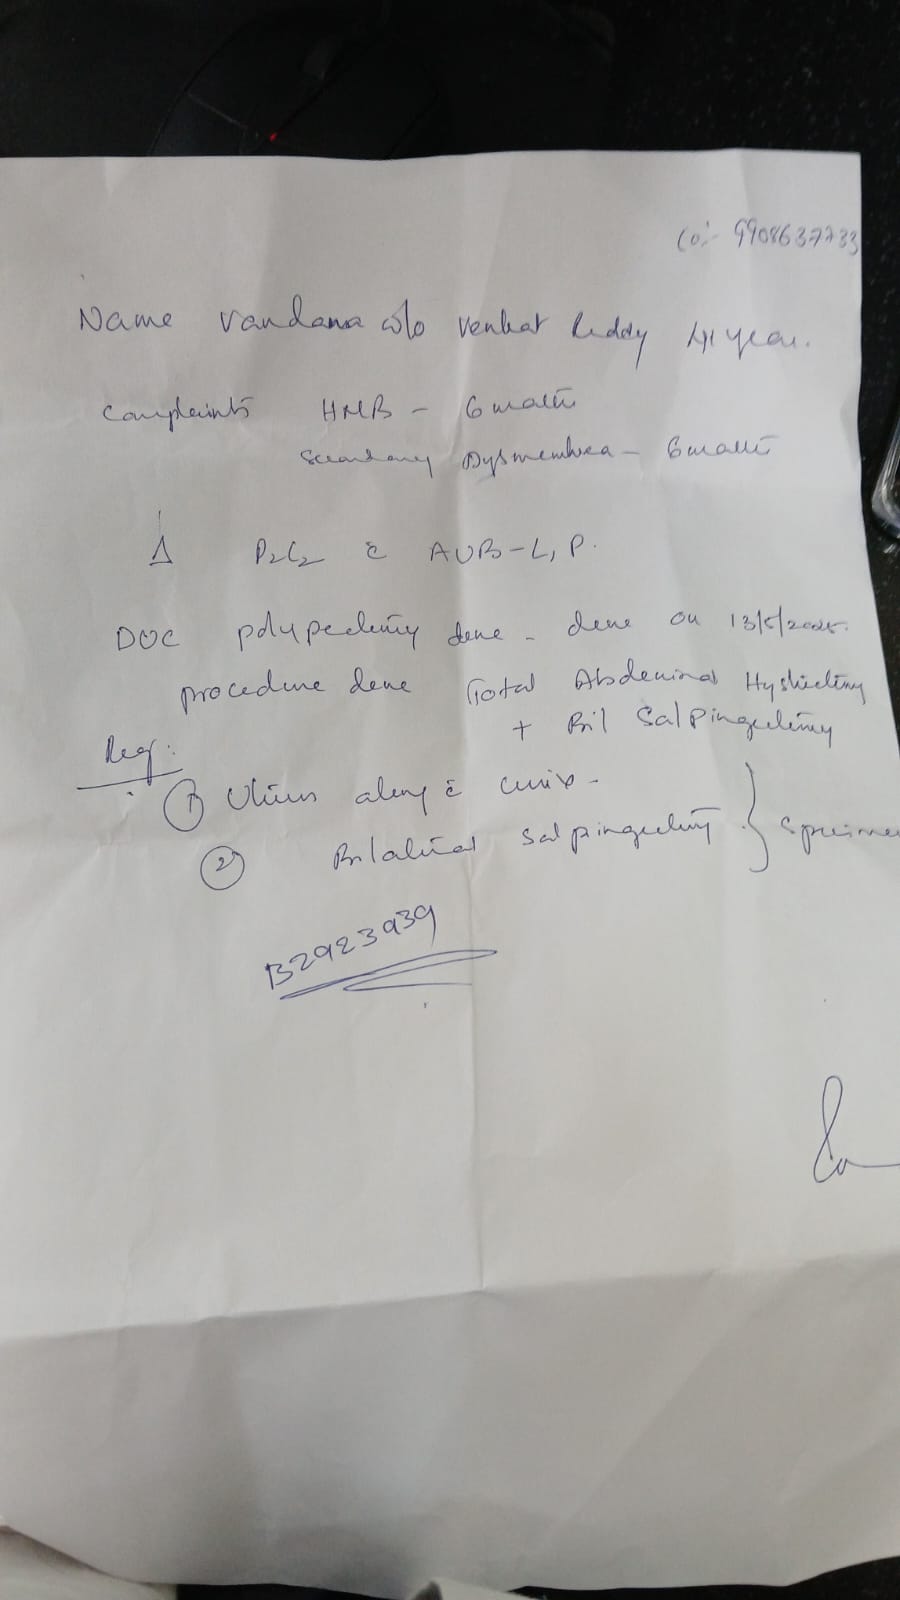 Co:- 9908637733
Name Vandana w/o Venkat Reddy 41 year.
Complaints HMB - 6 months
Secondary Dysmenorrhea - 6 months
Δ P2L2 c̄ AUB-L, P.
DOC polypectomy done - done on 13/5/2025.
procedure done Total Abdominal Hysterectomy
+ B/l Salpingectomy
Req:
① Uterus along c̄ cervix -
② Bilateral Salpingectomy } Specimen
B2923939